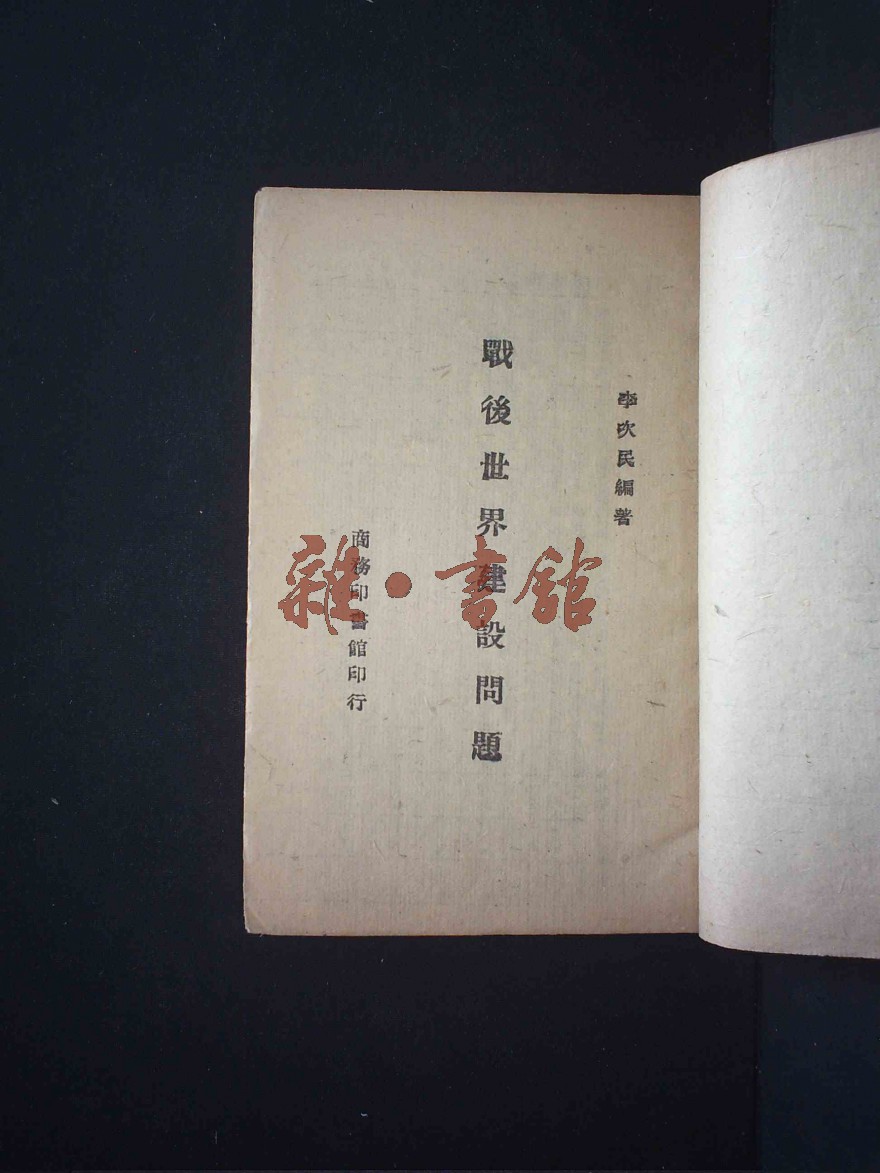 李次民編著
戰後世界建設問題
商務印書館印行
雜·書館